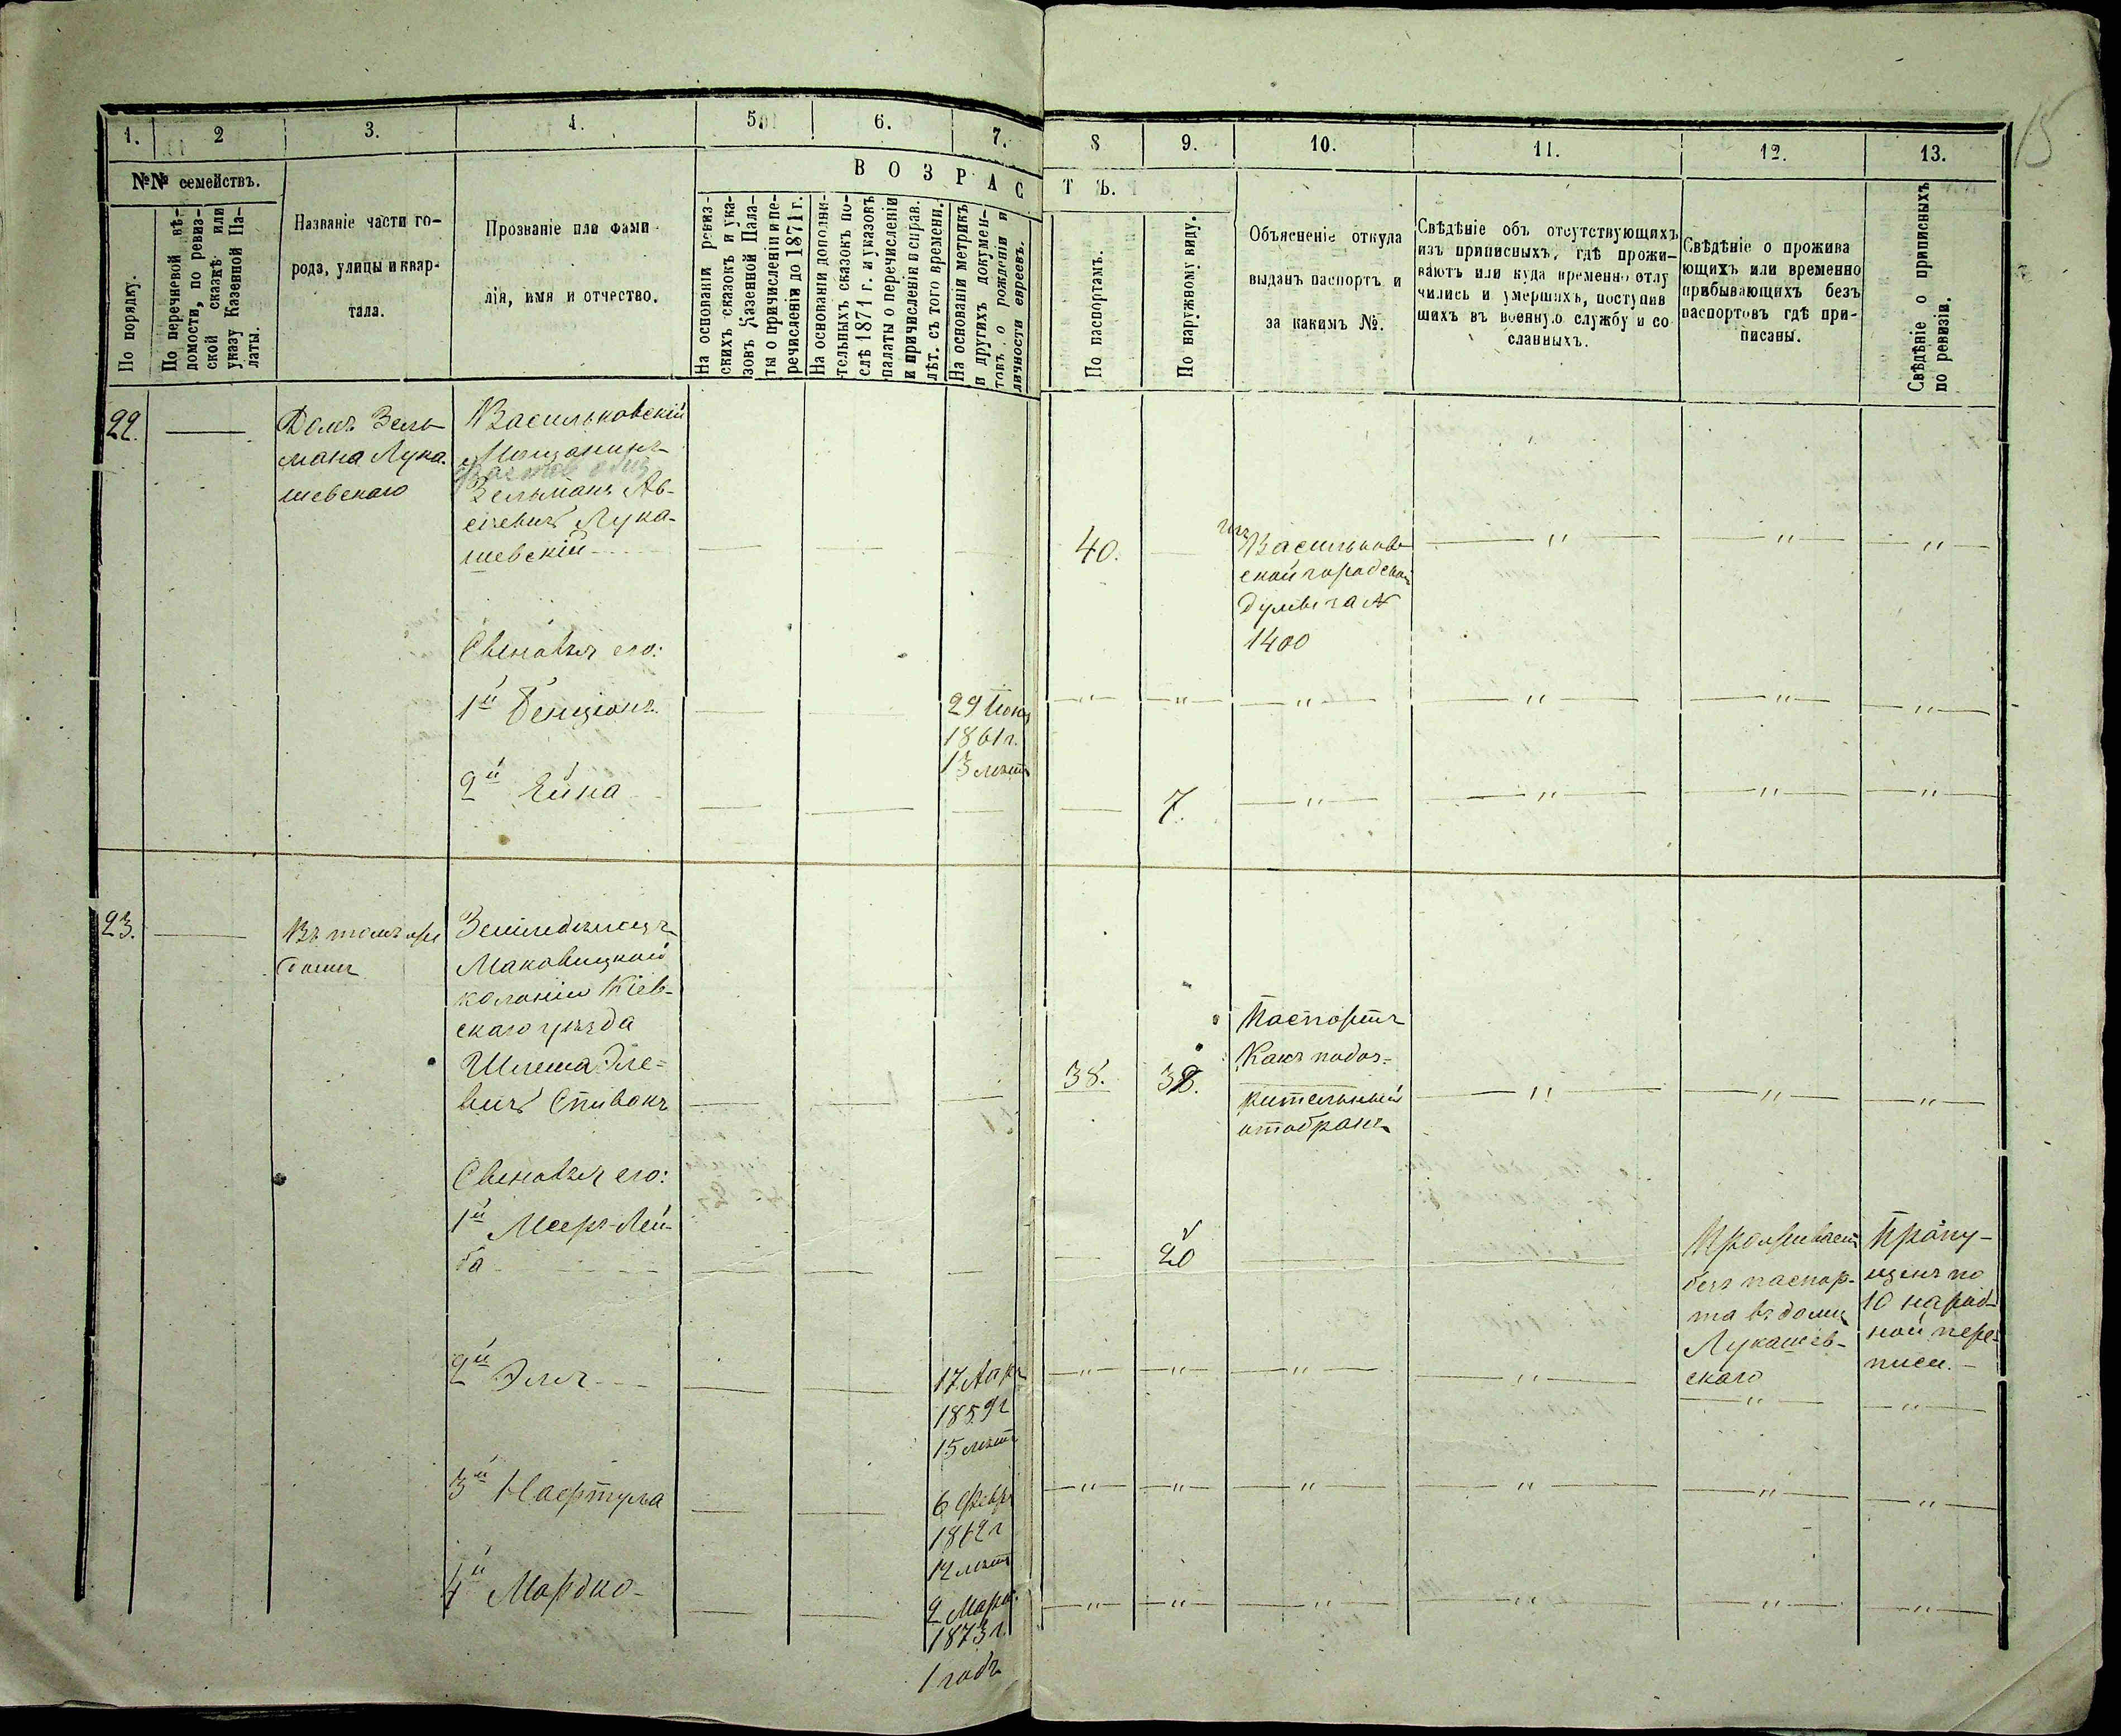 15
1. 2 3. 4. 5. 6. 7. 8 9. 10. 11. 12. 13.
№№ семействъ.
По порядку.
По перечневой вѣ-
домости, по ревиз-
ской сказкѣ или
указу Казенной Па-
латы.
Названіе части го-
рода, улицы и квар-
тала.
Прозваніе или фами-
лія, имя и отчество.
ВОЗРАСТЪ.
На основаніи ревиз-
скихъ сказокъ и ука-
зовъ Казенной Пала-
ты о причисленіи и пе-
речисленіи до 1871 г.
На основаніи дополни-
тельныхъ сказокъ по-
слѣ 1871 г. и указовъ
палаты о перечисленіи
и причисленіи и справ.
лѣт. съ того времени.
На основаніи метрикъ
и другихъ докумен-
товъ о рожденіи и
личности евреевъ.
По паспортамъ.
По наружному виду.
Объясненіе откуда
выданъ паспортъ и
за какимъ №.
Свѣдѣніе объ отсутствующихъ
изъ приписныхъ, гдѣ прожи-
ваютъ или куда временно отлу
чились и умершихъ, поступив
шихъ въ военную службу и со
сланныхъ.
Свѣдѣніе о прожива
ющихъ или временно
прибывающихъ безъ
паспортовъ гдѣ при-
писаны.
Свѣдѣніе о приписныхъ
по ревизіи.
22.
Домъ Зель
мана Лука-
шевскаго
Васильковскій
Мѣщанинъ
Зельманъ Ав-
сіевичъ Лука-
шевскій
40.
изъ
Васильков
ской городской
думы за №
1400
Сыновья его:
1й Бенціонъ
29 Іюня
1861 г.
13 лѣтъ
2й Ейна
7.
23.
Въ томъ же
домѣ
Земледѣлецъ
Маковицкой
колоніи Кіев-
скаго уѣзда
Шлема Эле-
вичъ Спивакъ
38. 38.
Паспортъ
Какъ подоз-
рительный
отобранъ
Сыновья его:
1й Мееръ-Лей-
ба
20
Проживаетъ
безъ паспор-
та въ домѣ
Лукашев-
скаго
Пропу-
щенъ по
10 народ-
ной пере-
писи.
2й Эля
17 Апр
1859 г
15 лѣтъ
3й Нафтула
6 Февр
1862 г
12 лѣтъ
4й Мордко
2 Март.
1873 г.
1 годъ